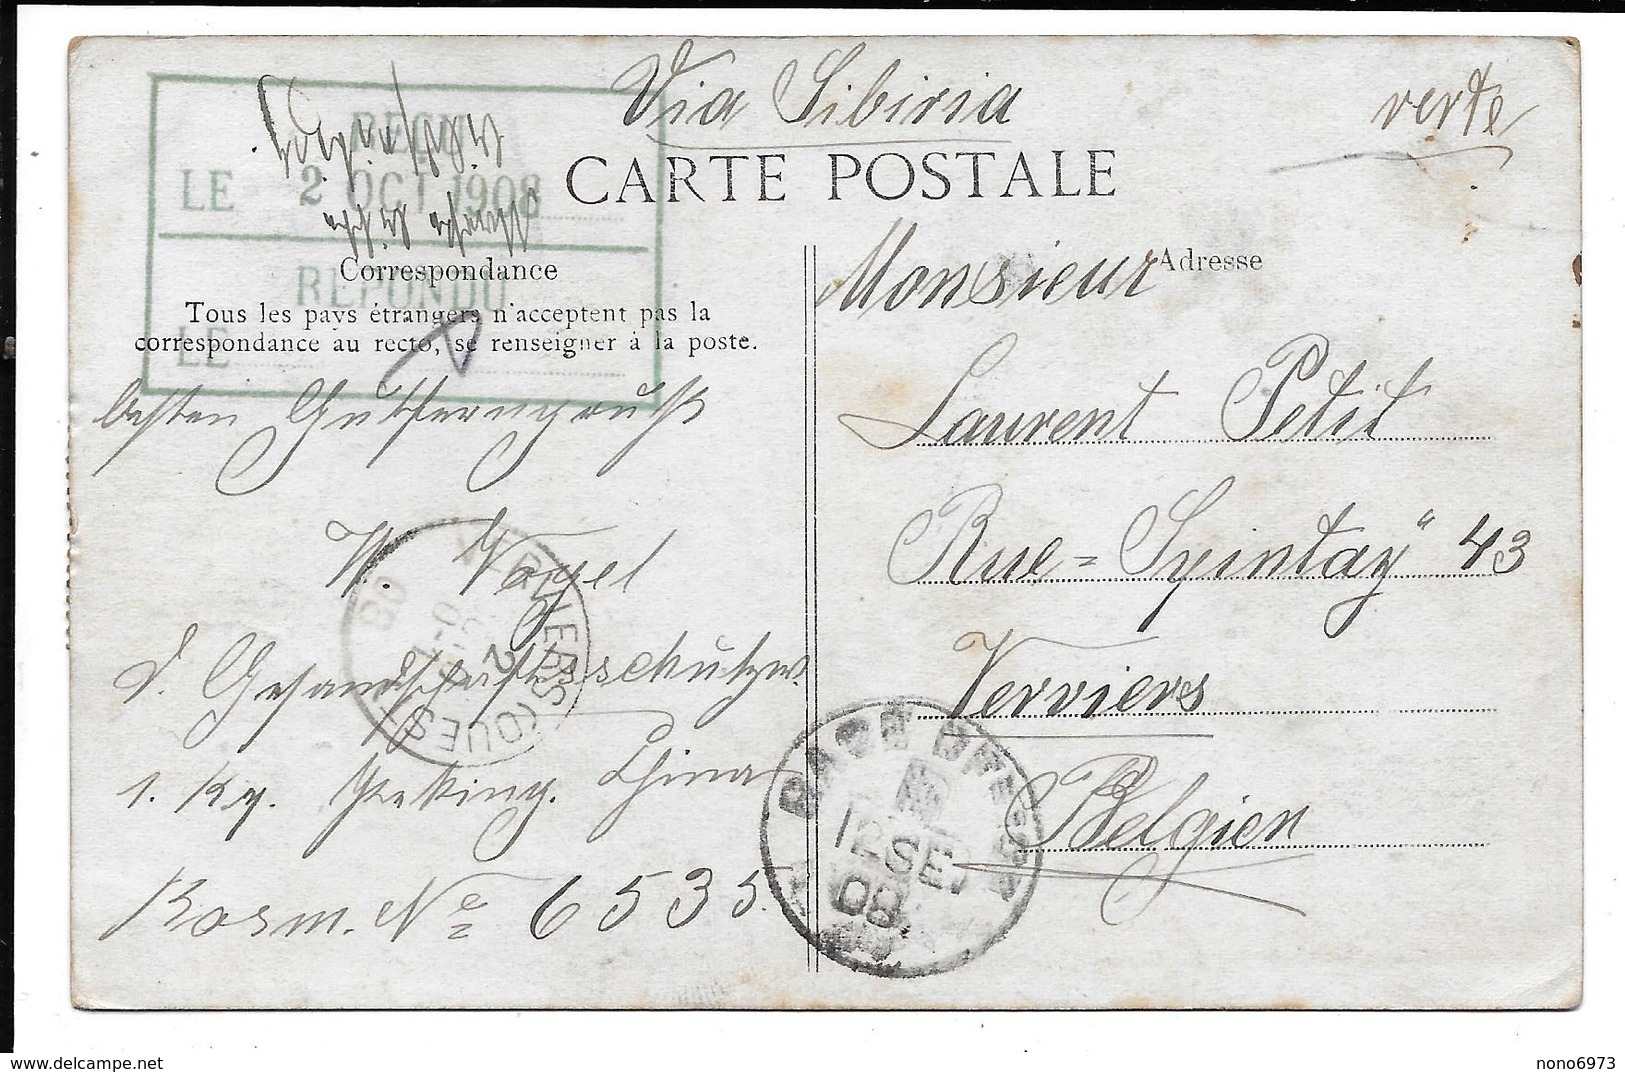 Via Sibiria
verte
CARTE POSTALE
REÇU
LE 2 OCT. 1908
RÉPONDU
LE
Correspondance
Tous les pays étrangers n'acceptent pas la
correspondance au recto, se renseigner à la poste.
Adresse
besten
W. Vogel
d. Gesandschaftsschutzw.
1. Kp. Peking. China
Kosm. No 6535.
Monsieur
Laurent Petit
Rue = Spintay" 43
Verviers
Belgien
VERVIERS (OUEST)
2
08
12 SE
08
delcampe.net
nono6973